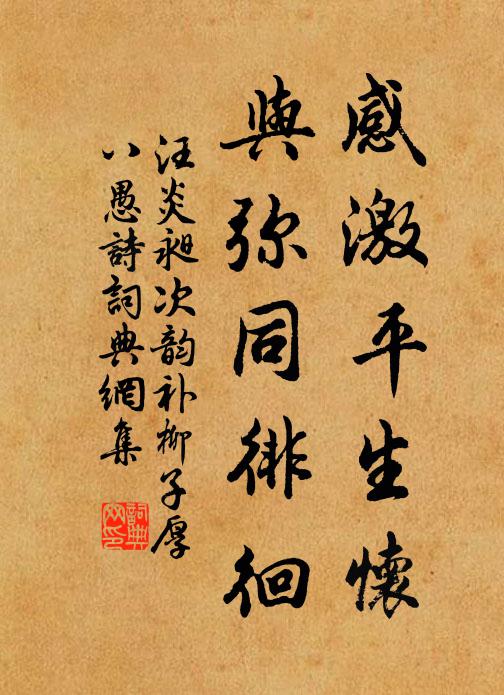 感激平生懷
與弥同徘徊
汪炎昶次韵补柳子厚
八愚詩詞典網集
詞典
网印